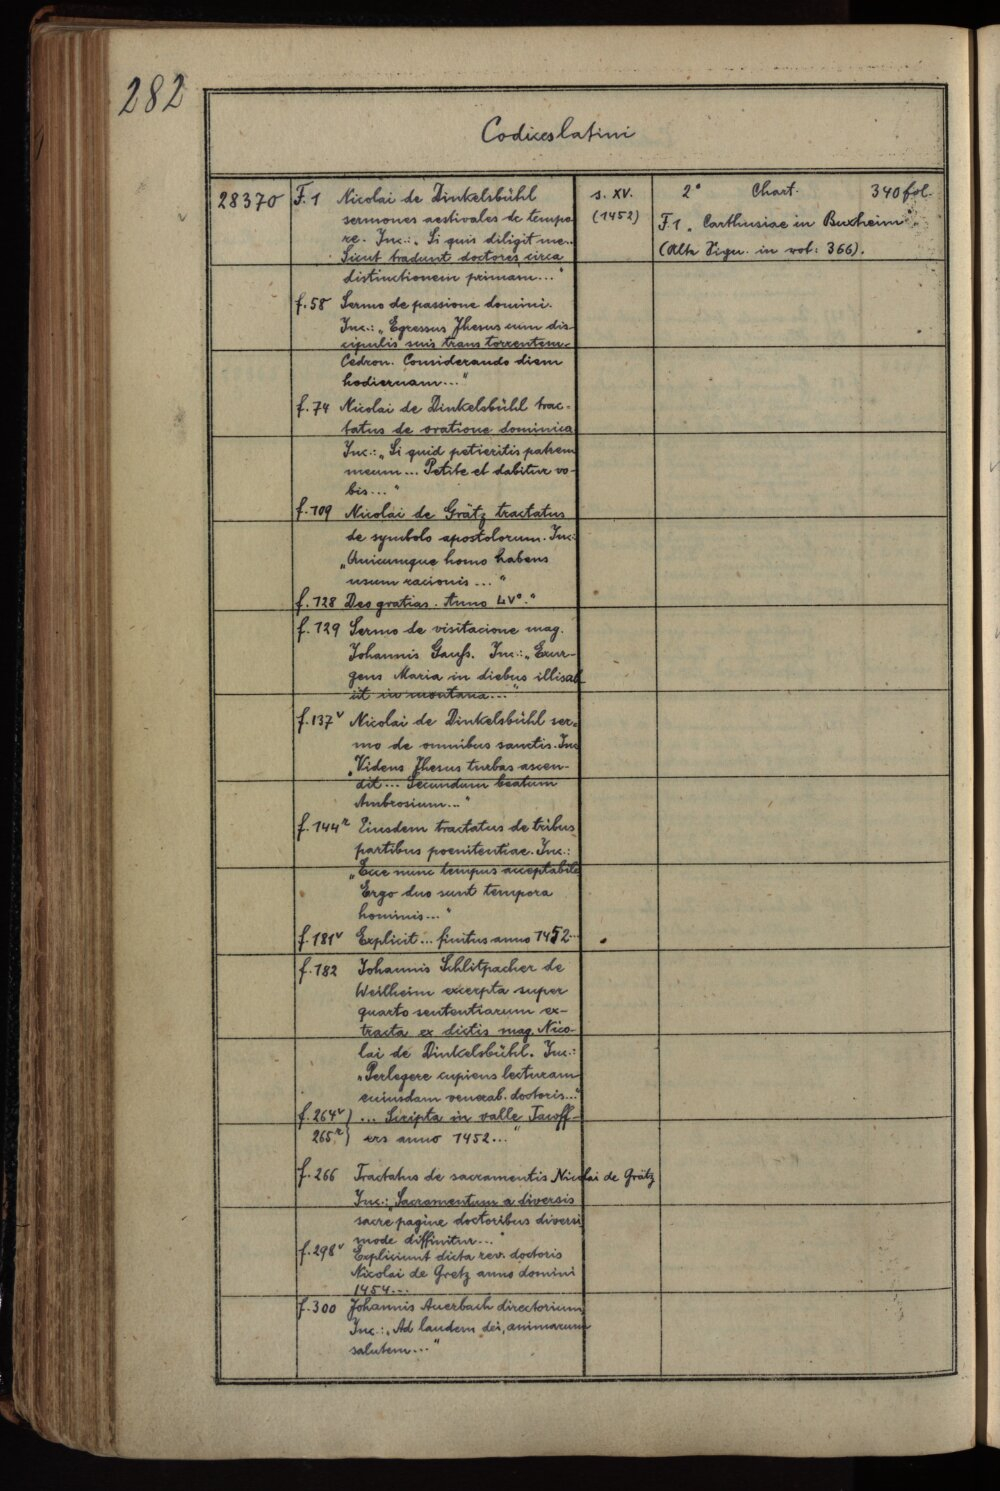 282
Codices latini
28370 F. 1 Nicolai de Dinkelsbühl
sermones aestivales de tempo
re. Inc.: „Si quis diligit me..
Sicut tradunt doctores circa
distinctionem primam..."
s. XV.
(1452)
2° Chart. 340 fol.
F. 1 „Carthusiae in Buxheim".
(Alte Sign. in vol: 366).
f. 58 Sermo de passione domini.
Inc.: „Egressus Jhesus cum dis-
cipulis suis trans torrentem-
Cedron. Considerando diem
hodiernam..."
f. 74 Nicolai de Dinkelsbühl trac-
tatus de oratione dominica
Inc.: „Si quid petieritis patrem
meum... Petite et dabitur vo-
bis..."
f. 109 Nicolai de Grätz tractatus
de symbolo apostolorum. Inc:
„Quicumque homo habens
usum racionis..."
f. 128 Deo gratias. Anno LV°."
f. 129 Sermo de visitacione mag.
Johannis Gauss. Inc.: „Exur-
gens Maria in diebus illis ab
iit in montana..."
f. 137v Nicolai de Dinkelsbühl ser-
mo de omnibus sanctis. Inc
„Videns Jhesus turbas ascen-
dit... Secundum beatum
Ambrosium..."
f. 144r Eiusdem tractatus de tribus
partibus poenitentiae. Inc.:
„Ecce nunc tempus acceptabile
Ergo duo sunt tempora
hominis..."
f. 181v Explicit... finitus anno 1452...
f. 182 Johannis Schlitpacher de
Weilheim excerpta super
quarto sententiarum ex-
tracta ex dictis mag. Nico-
lai de Dinkelsbühl. Inc.:
„Perlegere cupiens lecturam
cuiusdam venerab. doctoris..."
f. 264v) ... Scripta in valle
265r) ers anno 1452..."
f. 266 Tractatus de sacramentis Nicolai de Grätz
Inc.: „Sacramentum a diversis
sacre pagine doctoribus diversi
mode diffinitur..."
f. 298v Expliciunt dicta rev. doctoris
Nicolai de Gretz anno domini
1454...
f. 300 Johannis Auerbach directorium
Inc.: „Ad laudem dei, animarum
salutem..."